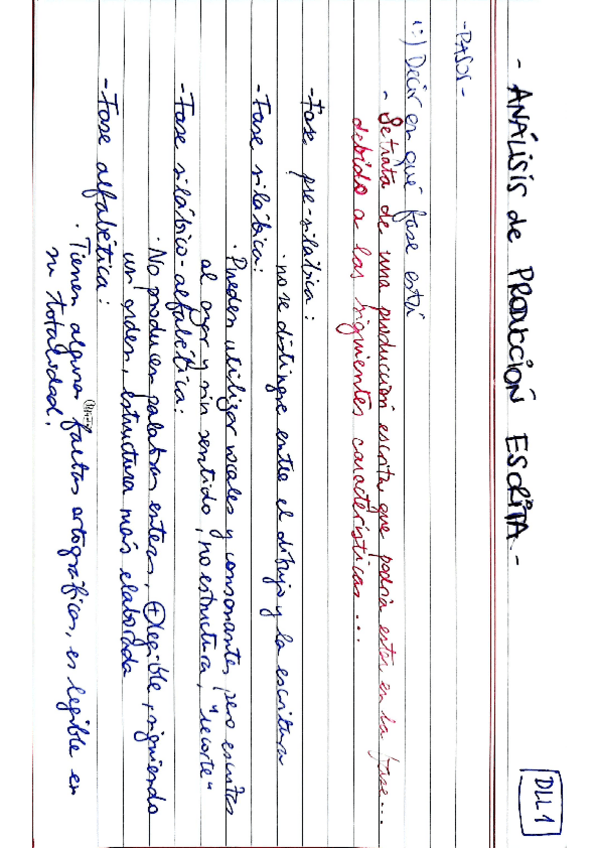 DLL1
- ANÁLISIS de PRODUCCIÓN ESCRITA -
- PASOS -
1º) Decir en qué fase está
- Se trata de una producción escrita que podría estar en la fase...
debido a las siguientes características...
- Fase pre-silábica:
· no se distingue entre el dibujo y la escritura
- Fase silábica:
· Pueden utilizar vocales y consonantes, pero escritas
al azar y sin sentido, no estructura, "recorte"
- Fase silábico-alfabética:
· No producen palabras enteras, + legible, siguiendo
un orden, estructura más elaborada
- Fase alfabética:
· Tienen algunas faltas ortográficas, es legible en
su totalidad.